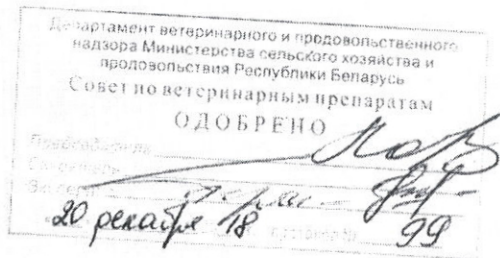 Департамент ветеринарного и продовольственного
надзора Министерства сельского хозяйства и
продовольствия Республики Беларусь
Совет по ветеринарным препаратам
ОДОБРЕНО
Председатель
Секретарь
Эксперт
20 декабря 18 протокол № 99